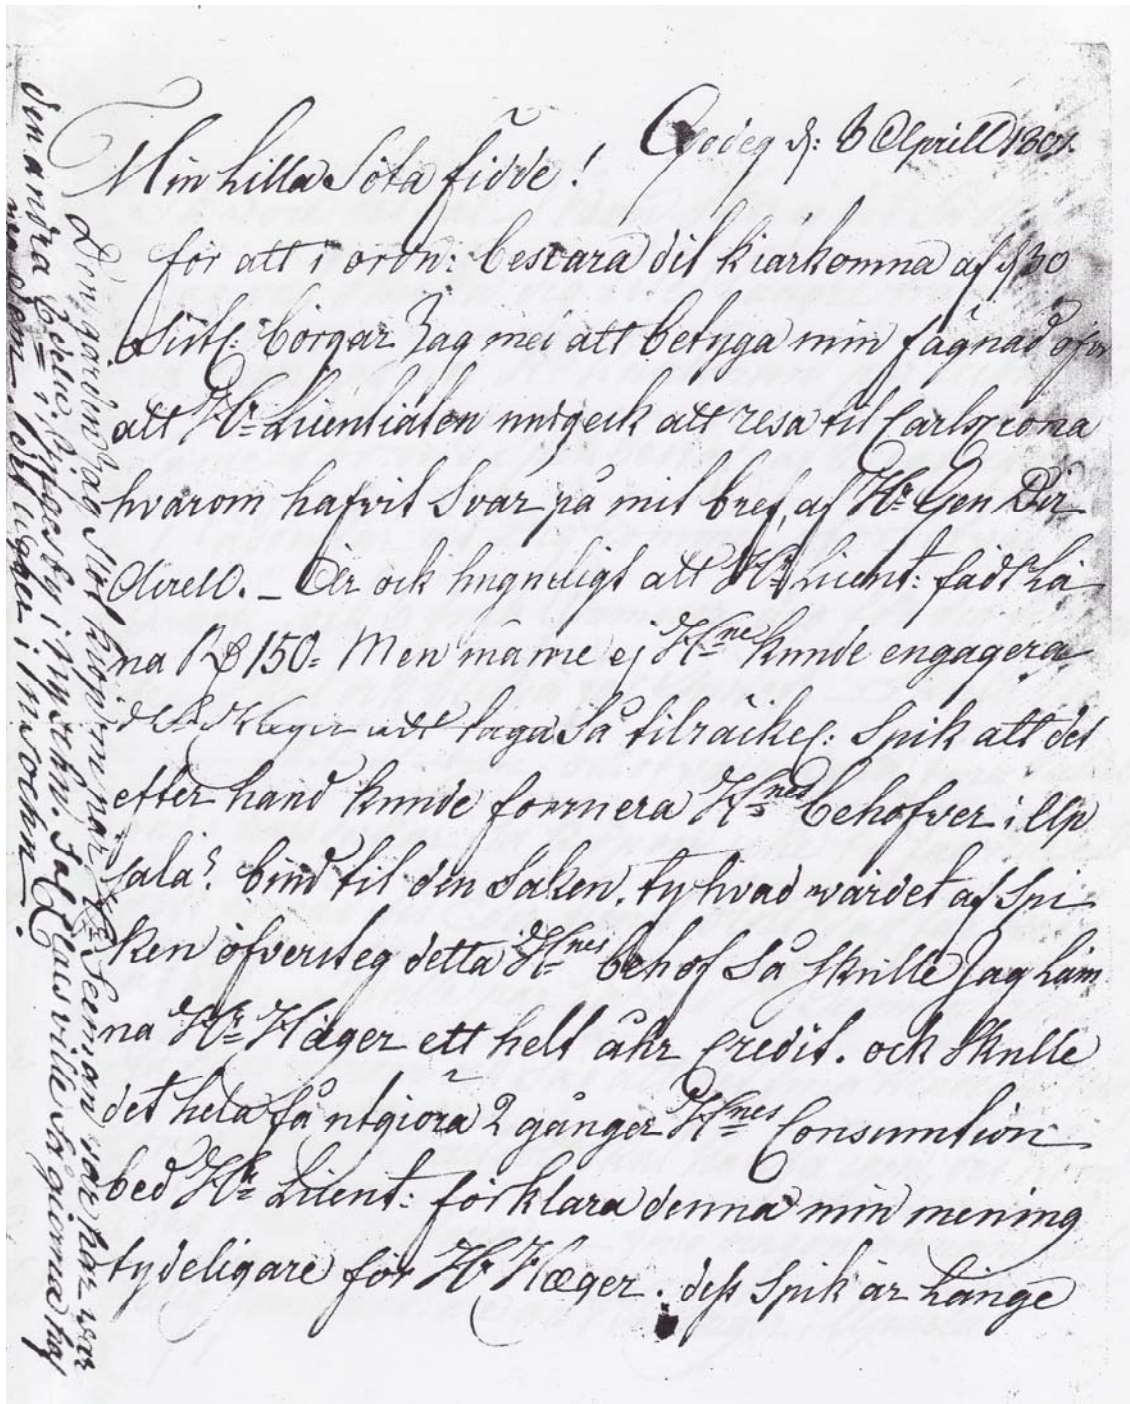 d: 3 Aprill 1801.
Min Lilla Söta fidde!
för att i ordn: besvara dit kiärkomna af d 30
Sistl: börgar Jag med att betyga min fägnad öfver
att Hr Licentiaten undgeck att resa til Carlscrona
hvarom hafvit Svar på mit bref, af Hr Gen Dir
Är ock hugneligt att Hr Licent: fådt Lå
na Rd 150= Men månne ej Hne kunde engagera
Hr Hæger att taga Så tilräckel: Spik att det
efter hand kunde fournera Hnes behofver i Up
sala? biud til den Saken, ty hvad värdet af Spi
ken öfversteg detta Hnes behof Så Skulle Jag Läm
na Hr Hæger ett helt åhr Credit. ock Skulle
det hela få utgiöra 2 gånger Hnes Consumtion
bed Hr Licent: förklara denna min mening
tydeligare för Hr Hæger. dess Spik är Länge
Den garfund Jag Sist när Hr Seeman var här var
den andra i nysohn. Jal Claus ville Så gierna haf
va dem. det ligger i